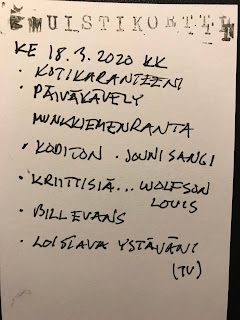 MUISTIKORTTI
KE 18.3.2020 KK
• KOTIKARANTEENI
• PÄIVÄKÄVELY
MUNKKIEMENRANTA
• KODITON. JOUNI SANGI
• KRIITTISIÄ... WOLFSON
LOUIS
• BILL EVANS
• LOISTAVA YSTÄVÄNI
(TV)